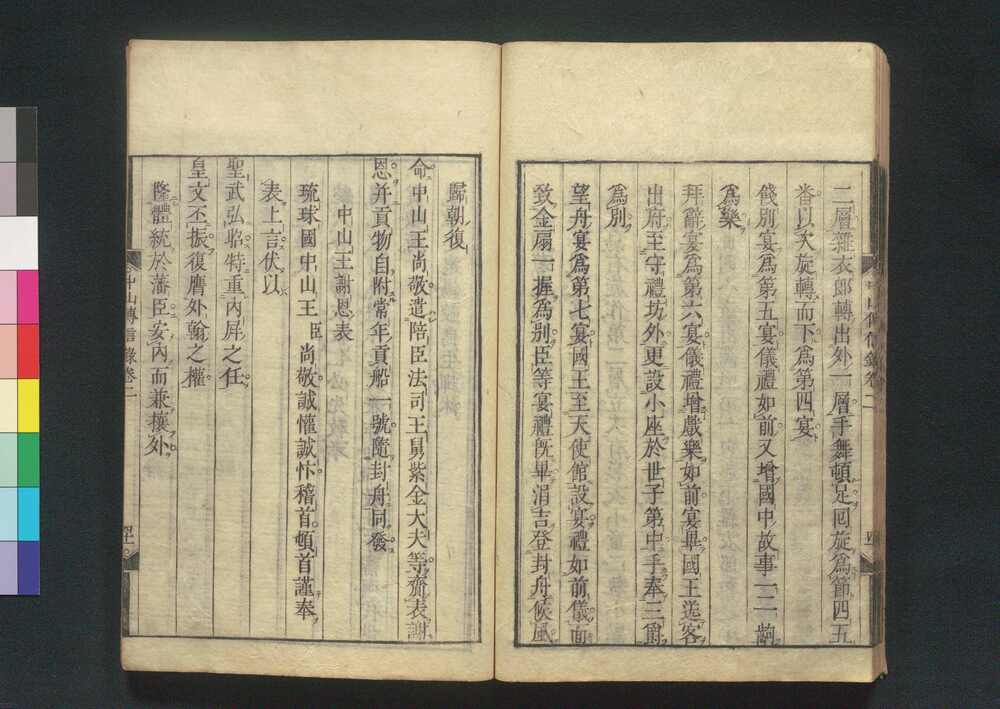 二層雜衣郎轉出外一層手舞頓足回旋爲節四五
番以次旋轉而下爲第四宴
餞別宴爲第五宴儀禮如前又增國中故事一二齣
爲樂
拜辭宴爲第六宴儀禮增戲樂如前宴畢國王送客
出府至守禮坊外更設小座於世子第中手奉三爵
爲別
望舟宴爲第七宴國王至天使館設宴禮如前儀面
致金扇一握爲別臣等宴禮旣畢涓吉登封舟候風
中山傳信錄卷二
歸朝復
命中山王尚敬遣陪臣法司王舅紫金大夫等齎表謝
恩并貢物自附常年貢船一號隨封舟同發
中山王謝恩表
琉球國中山王臣尚敬誠懽誠忭稽首頓首謹奉
表上言伏以
聖武弘昭特重內屏之任
皇文丕振復膺外翰之權
隆體統於藩臣安內而兼攘外
中山傳信錄卷二